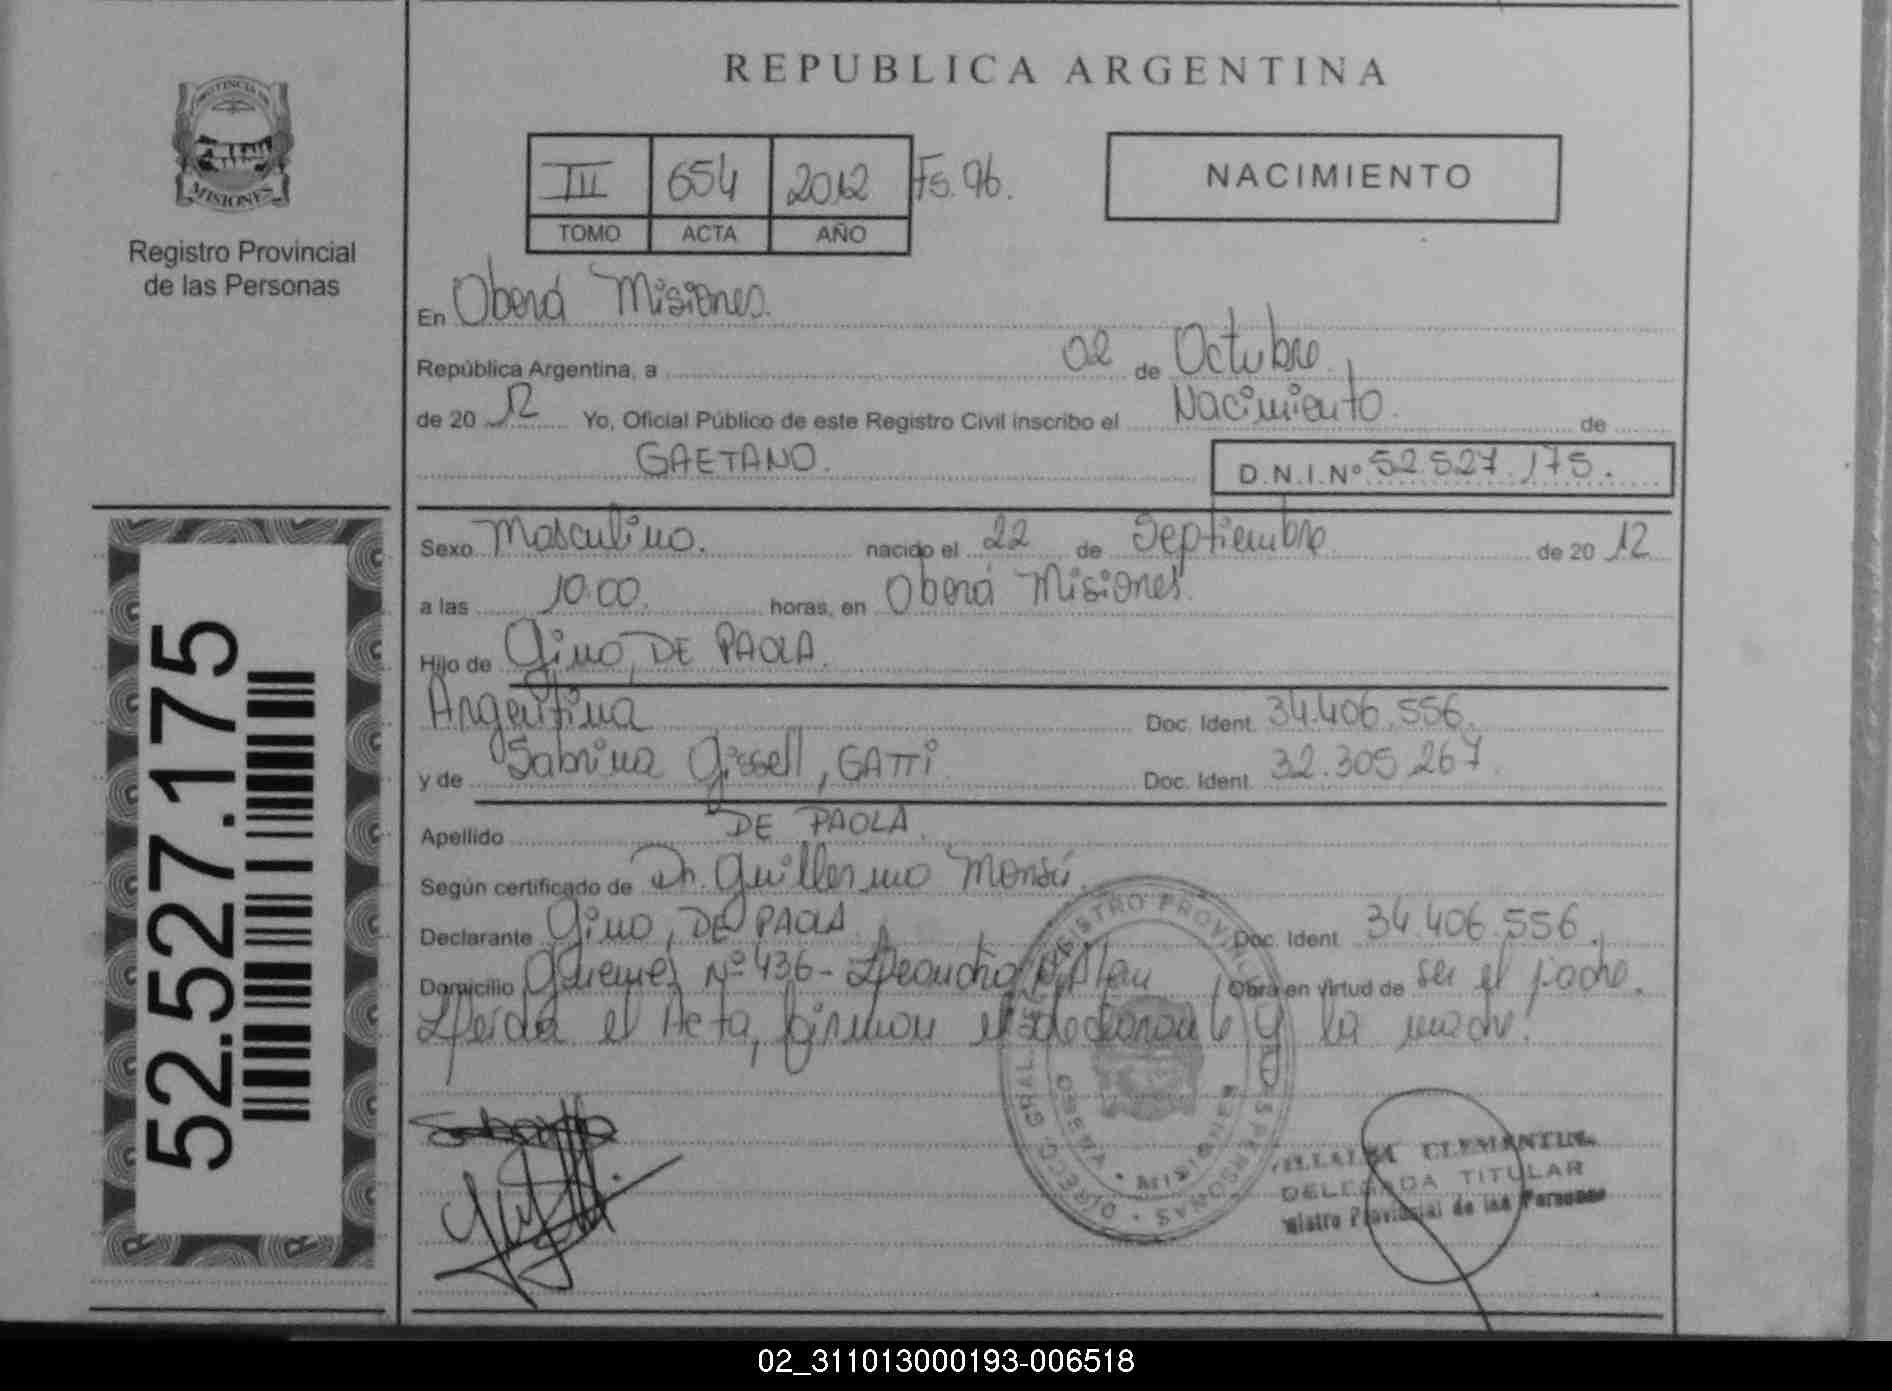 PROVINCIA DE
MISIONES
Registro Provincial
de las Personas
52.527.175
REPUBLICA ARGENTINA
III 654 2012 Fs. 96.
TOMO ACTA AÑO
NACIMIENTO
En Oberá Misiones.
República Argentina, a 02 de Octubre.
de 20 12 Yo, Oficial Público de este Registro Civil inscribo el Nacimiento. de
GAETANO. D.N.I.Nº 52.527.175.
Sexo Masculino. nacido el 22 de Septiembre de 20 12
a las 10.00. horas, en Oberá Misiones.
Hijo de Gino, DE PAOLA.
Argentina Doc. Ident. 34.406.556.
y de Sabrina Gissell, GATTI Doc. Ident. 32.305.267.
Apellido DE PAOLA.
Según certificado de Dr. Guillermo
Declarante Gino, DE PAOLA Doc. Ident. 34.406.556.
Domicilio Güemes Nº 436- Leandro N. Alem Obra en virtud de ser el padre.
Leída el Acta, firman el declarante y la madre.
DIRECC. GRAL. REGISTRO PROVINCIAL DE LAS PERSONAS
MISIONES
CLEMENTINA
DELEGADA TITULAR
Registro Provincial de las Personas
02_311013000193-006518